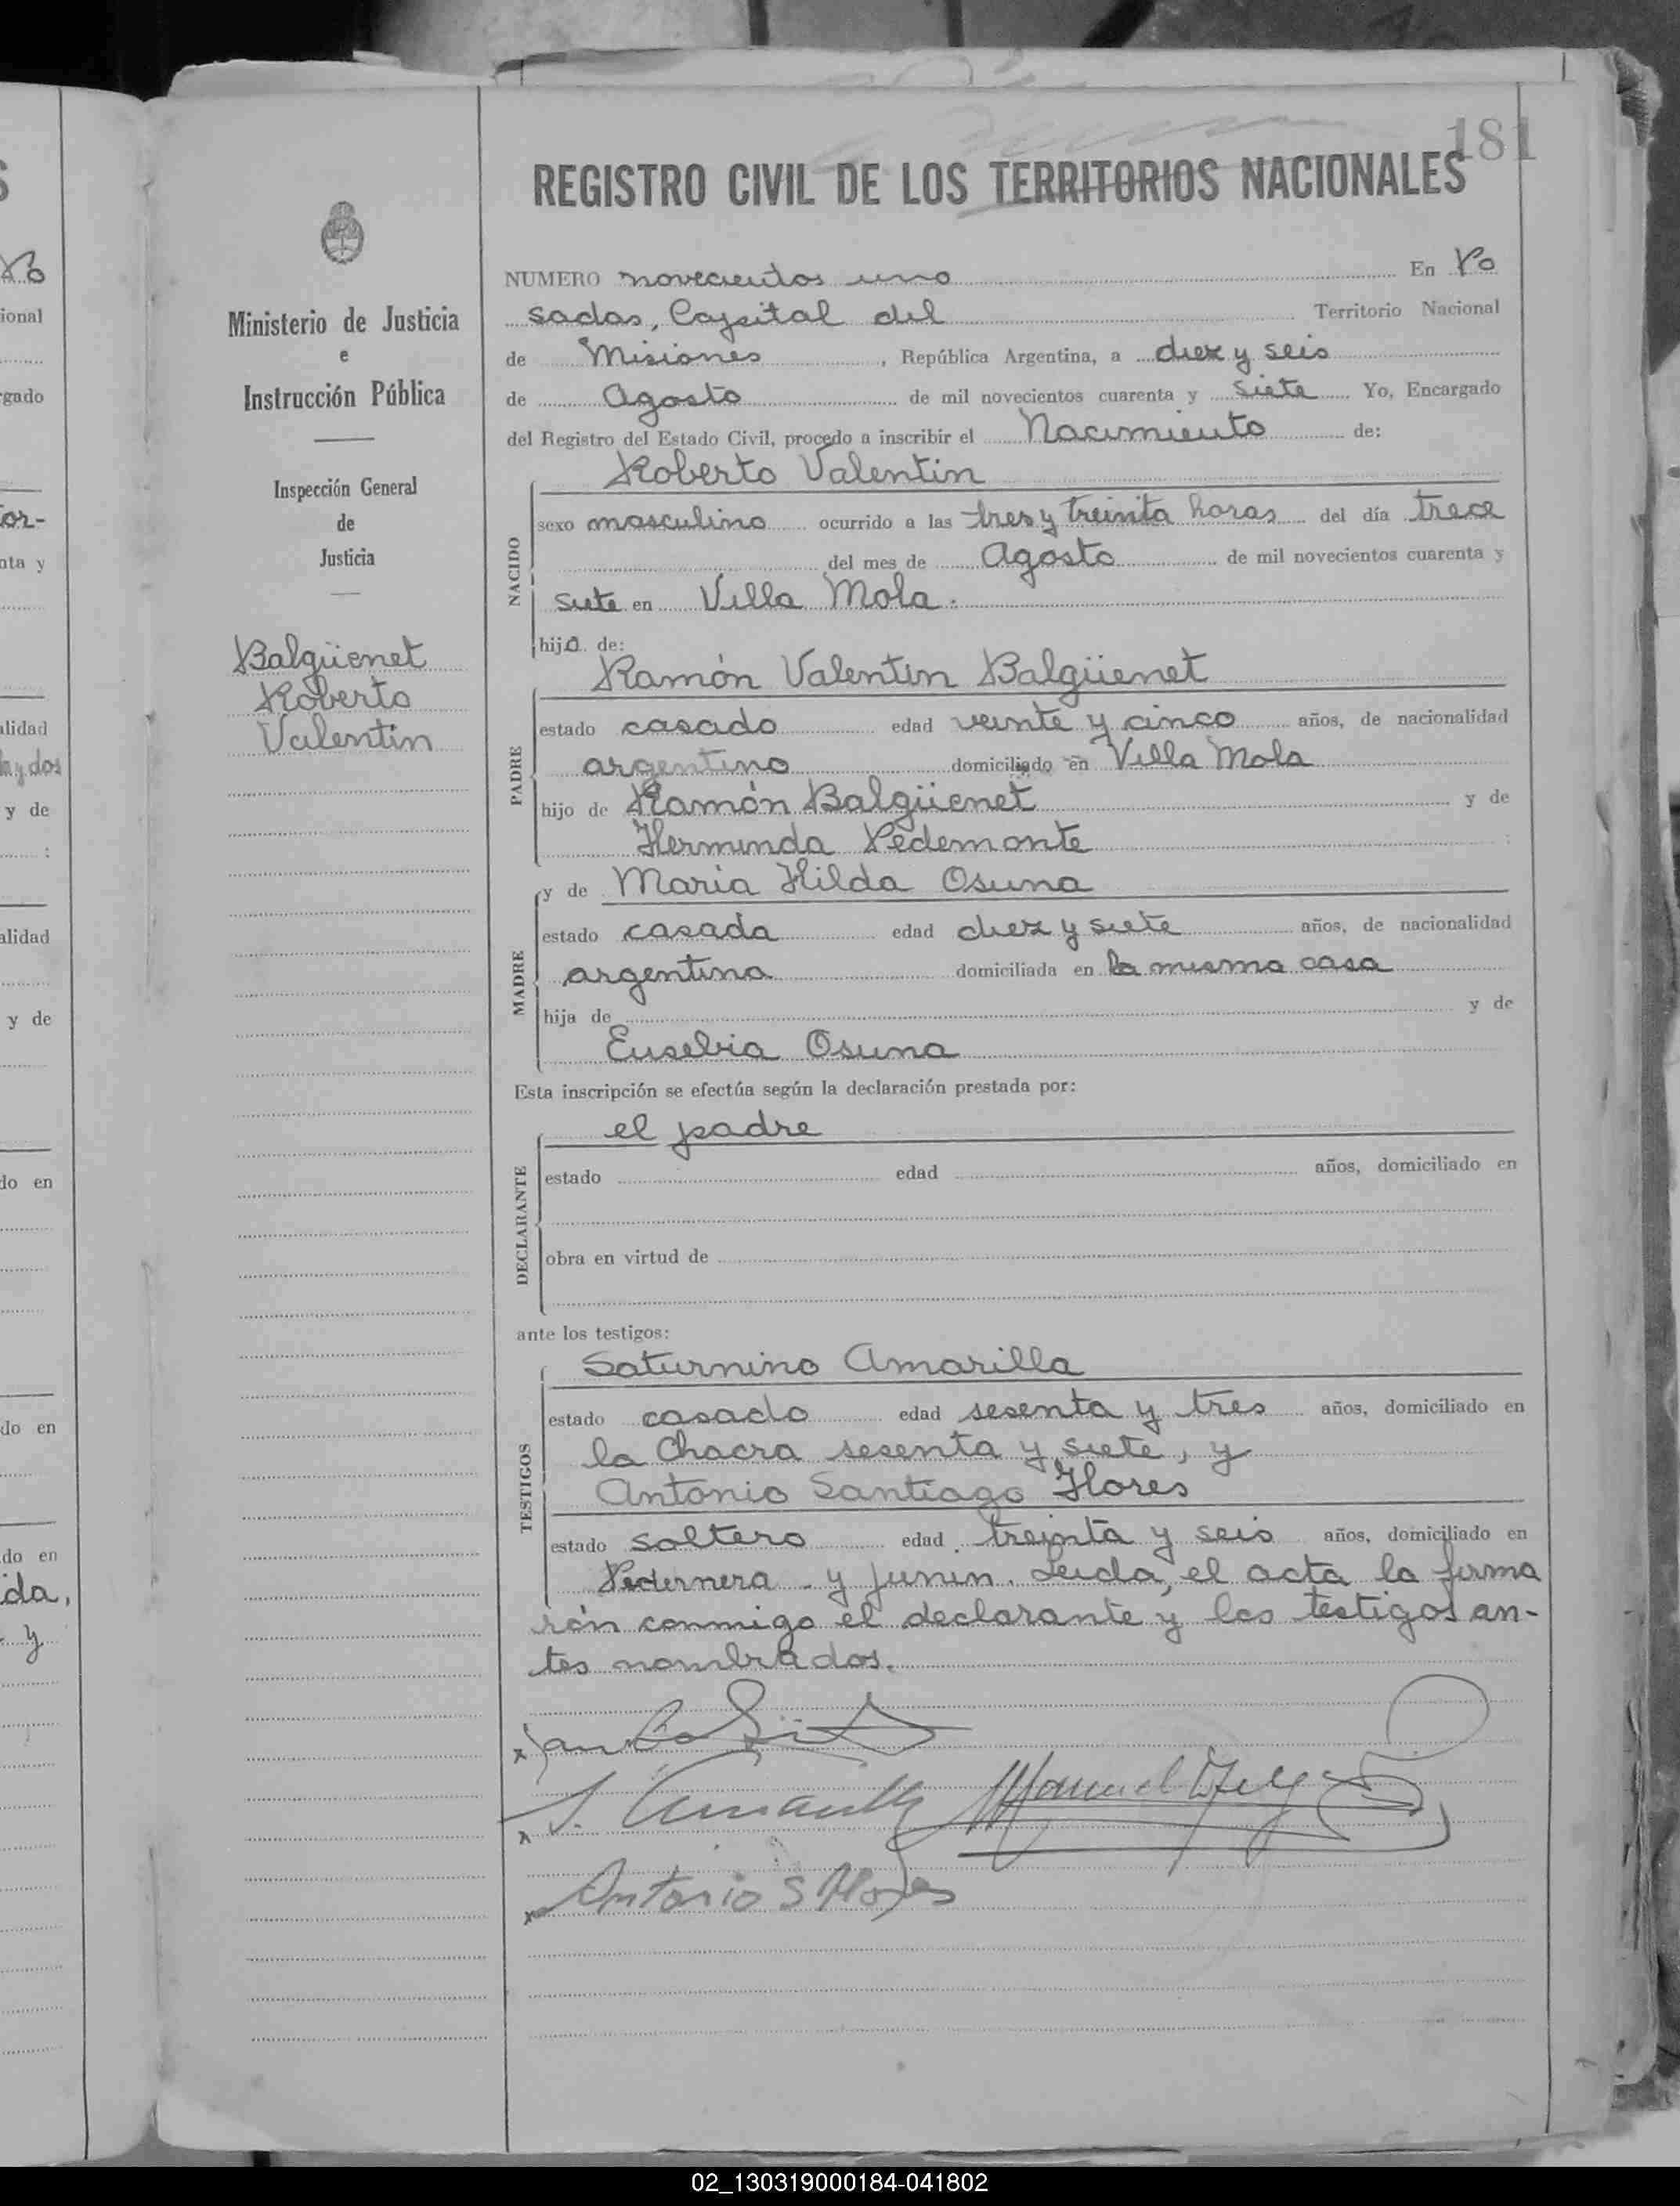 181
REGISTRO CIVIL DE LOS TERRITORIOS NACIONALES
Ministerio de Justicia
e
Instrucción Pública
Inspección General
de
Justicia
Balgüenet
Roberto
Valentin
NUMERO novecientos uno En Po
sadas, Capital del Territorio Nacional
de Misiones, República Argentina, a diez y seis
de Agosto de mil novecientos cuarenta y siete Yo, Encargado
del Registro del Estado Civil, procedo a inscribir el Nacimiento de:
Roberto Valentin
NACIDO
sexo masculino ocurrido a las tres y treinta horas del día trece
del mes de Agosto de mil novecientos cuarenta y
siete en Villa Mola.
hijo de:
Ramón Valentin Balgüenet
PADRE
estado casado edad veinte y cinco años, de nacionalidad
argentino domiciliado en Villa Mola
hijo de Ramón Balgüenet y de
Herminda Pedemonte :
y de Maria Hilda Osuna
MADRE
estado casada edad diez y siete años, de nacionalidad
argentina domiciliada en la misma casa
hija de y de
Eusebia Osuna
Esta inscripción se efectúa según la declaración prestada por:
el padre
DECLARANTE
estado edad años, domiciliado en
obra en virtud de
ante los testigos:
Saturnino Amarilla
TESTIGOS
estado casado edad sesenta y tres años, domiciliado en
la Chacra sesenta y siete, y
Antonio Santiago Flores
estado soltero edad treinta y seis años, domiciliado en
Pedernera y Junin. Leida, el acta la firma
ron conmigo el declarante y los testigos an-
tes nombrados.
S. Amarilla
Manuel
Antonio S Flores
ional
rgado
or-
nta y
alidad
y dos
y de
:
alidad
y de
do en
do en
do en
ida,
y
02_130319000184-041802